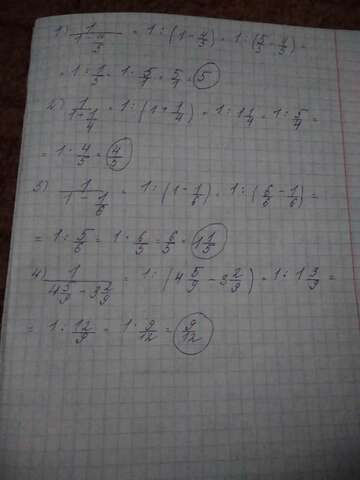 1) 1/(1-4/5) = 1 : (1-4/5) = 1 : (5/5-4/5) =
= 1 : 1/5 = 1 · 5/1 = 5/1 = 5
2) 1/(1+1/4) = 1 : (1+1/4) = 1 : 1 1/4 = 1 : 5/4 =
= 1 · 4/5 = 4/5
3) 1/(1-1/6) = 1 : (1-1/6) = 1 : (6/6-1/6) =
= 1 : 5/6 = 1 · 6/5 = 6/5 = 1 1/5
4) 1/(4 5/9-3 2/9) = 1 : (4 5/9-3 2/9) = 1 : 1 3/9 =
= 1 : 12/9 = 1 · 9/12 = 9/12